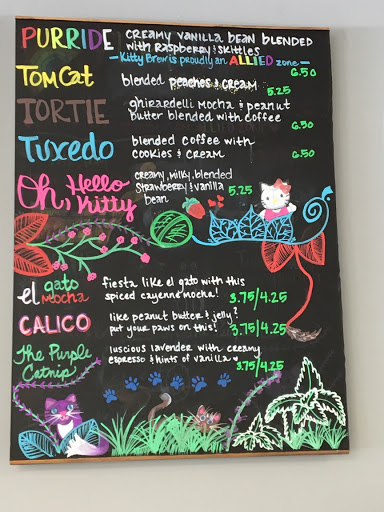 PURRIDE creamy vanilla bean blended
with raspberry & skittles
- Kitty Brew is proudly an ALLIED zone -
Tom Cat blended peaches & cream 6.50
5.25
TORTIE ghirardelli mocha & peanut
butter blended with coffee
6.50
Tuxedo blended coffee with
cookies & cream 6.50
Oh, Hello
Kitty
creamy, milky, blended
strawberry & vanilla
bean 5.25
el gato
mocha
fiesta like el gato with this
spiced cayenne mocha! 3.75/4.25
CALICO like peanut butter & jelly?
put your paws on this! 3.75/4.25
The Purple
Catnip
luscious lavender with creamy
espresso & hints of vanilla
3.75/4.25